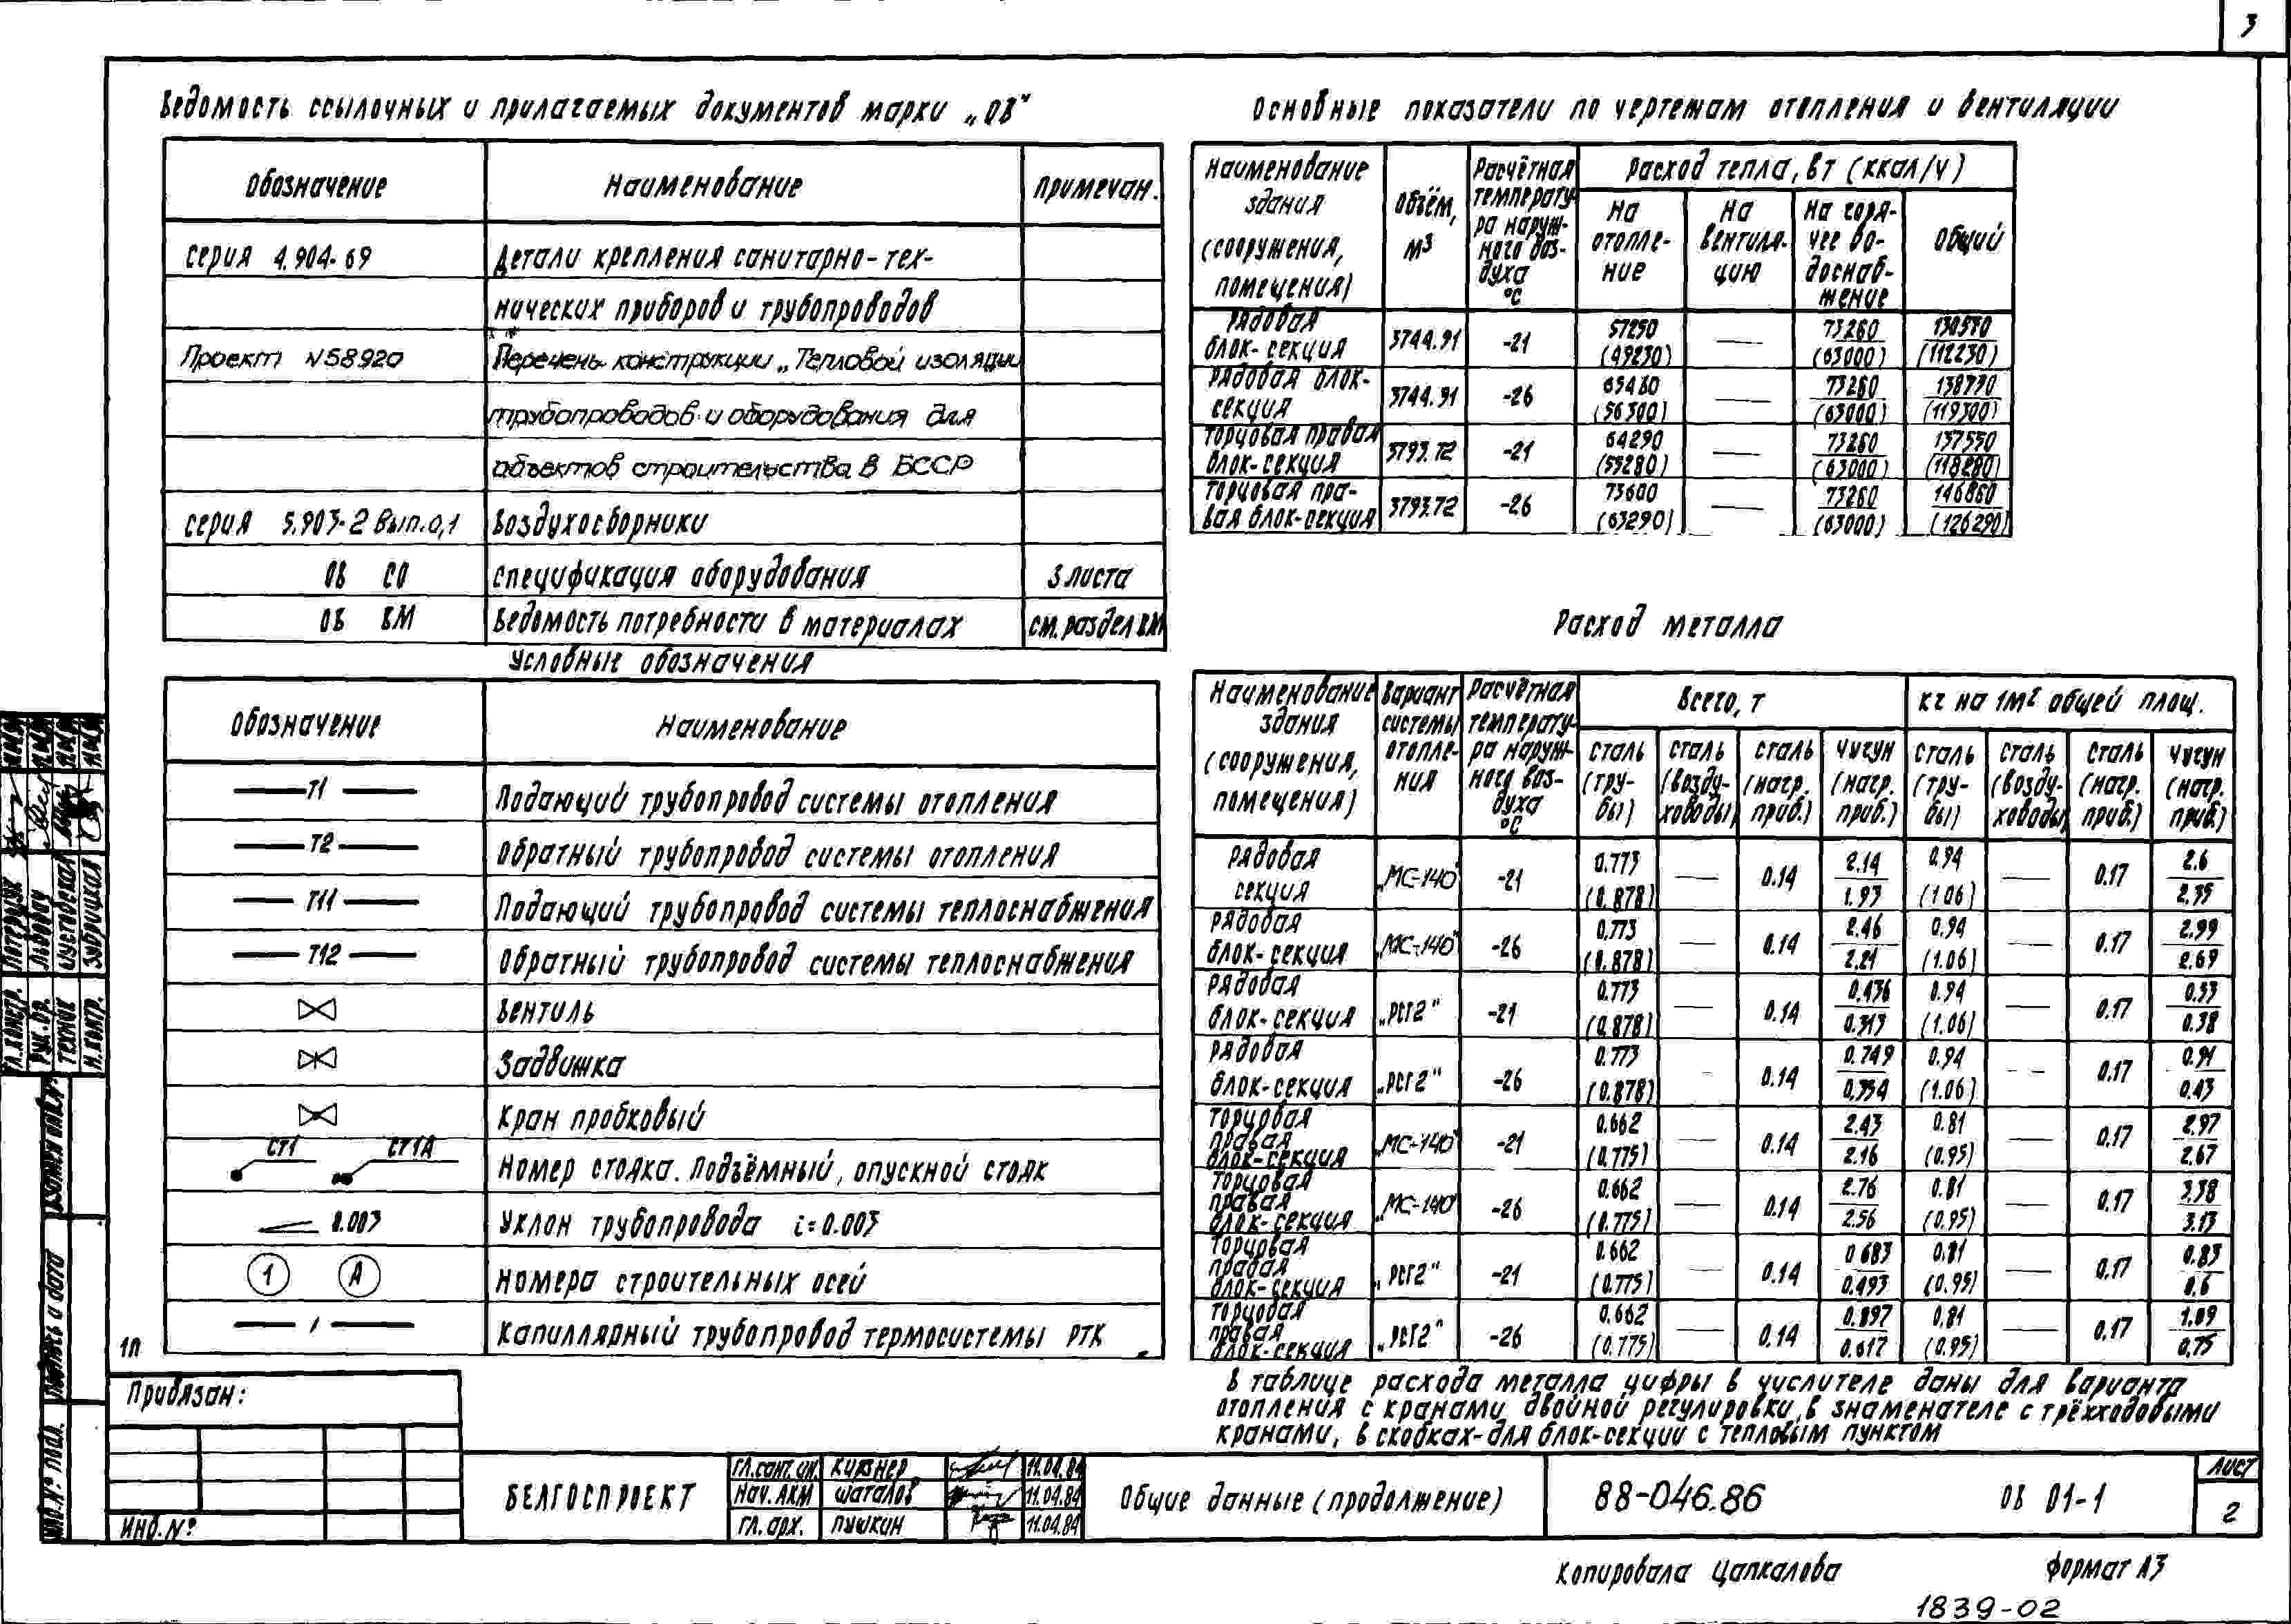 3
Ведомость ссылочных и прилагаемых документов марки „ОВ"
Обозначение Наименование Примечан.
Серия 4.904-69 Детали крепления санитарно-тех-
нических приборов и трубопроводов
Проект N58920 Перечень конструкции „Тепловой изоляции
трубопроводов и оборудования для
объектов строительства в БССР
Серия 5.903-2 Вып.0,1 Воздухосборники
ОВ СО Спецификация оборудования 3 листа
ОВ ВМ Ведомость потребности в материалах см. раздел ВМ
Условные обозначения
Обозначение Наименование
Т1 Подающий трубопровод системы отопления
Т2 Обратный трубопровод системы отопления
Т11 Подающий трубопровод системы теплоснабжения
Т12 Обратный трубопровод системы теплоснабжения
Вентиль
Задвижка
Кран пробковый
СТ1 СТ1А Номер стояка. Подъёмный, опускной стояк
0.003 Уклон трубопровода i=0.003
1 А Номера строительных осей
Капиллярный трубопровод термосистемы РТК
Основные показатели по чертежам отопления и вентиляции
Наименование здания (сооружения, помещения) Объём, м³ Расчётная температу-ра наруж-ного воз-духа °С Расход тепла, Вт (ккал/ч)
на отопле-ние на вентиля-цию на горя-чее во-доснаб-жение общий
Рядовая блок-секция 3744.91 -21 57250 (49230) — 73260 (63000) 130530 (112230)
Рядовая блок-секция 3744.91 -26 65480 (56300) — 73260 (63000) 138770 (119300)
Торцовая правая блок-секция 3793.72 -21 64290 (55280) — 73260 (63000) 137550 (118280)
Торцовая пра-вая блок-секция 3793.72 -26 73600 (63290) — 73260 (63000) 146860 (126290)
Расход металла
Наименование здания (сооружения, помещения) Вариант системы отопле-ния Расчётная температу-ра наруж-ного воз-духа °С Всего, т кг на 1м² общей площ.
сталь (тру-бы) сталь (возду-ховоды) сталь (нагр. приб.) чугун (нагр. приб.) сталь (тру-бы) сталь (возду-ховоды) сталь (нагр. приб.) чугун (нагр. приб.)
Рядовая секция „МС-140" -21 0.773 (0.878) — 0.14 2.14 1.93 0.94 (1.06) — 0.17 2.6 2.35
Рядовая блок-секция „МС-140" -26 0.773 (0.878) — 0.14 2.46 2.21 0.94 (1.06) — 0.17 2.99 2.69
Рядовая блок-секция „РСГ2" -21 0.773 (0.878) — 0.14 0.436 0.313 0.94 (1.06) — 0.17 0.53 0.38
Рядовая блок-секция „РСГ2" -26 0.773 (0.878) — 0.14 0.749 0.354 0.94 (1.06) — 0.17 0.91 0.43
Торцовая правая блок-секция „МС-140" -21 0.662 (0.775) — 0.14 2.43 2.16 0.81 (0.95) — 0.17 2.97 2.67
Торцовая правая блок-секция „МС-140" -26 0.662 (0.775) — 0.14 2.76 2.56 0.81 (0.95) — 0.17 3.38 3.13
Торцовая правая блок-секция „РСГ2" -21 0.662 (0.775) — 0.14 0.683 0.493 0.81 (0.95) — 0.17 0.83 0.6
Торцовая правая блок-секция „РСГ2" -26 0.662 (0.775) — 0.14 0.897 0.617 0.81 (0.95) — 0.17 1.09 0.75
В таблице расхода металла цифры в числителе даны для варианта
отопления с кранами двойной регулировки, в знаменателе с трёхходовыми
кранами, в скобках-для блок-секции с тепловым пунктом
1п
Привязан:
Инв.№
БЕЛГОСПРОЕКТ
Гл.сант.ин. Кирзнер 11.04.84
Нач.АКМ Шаталов 11.04.84
Гл.арх. Пушкин 11.04.84
Общие данные (продолжение)
88-046.86 ОВ 01-1
Лист
2
Копировала Цапкалова Формат А3
1839-02
Гл.констр.
Рук.гр.
Техник
Н.контр. Забрицкая
Взамен инв.№
Подпись и дата
Инв.№ подл.